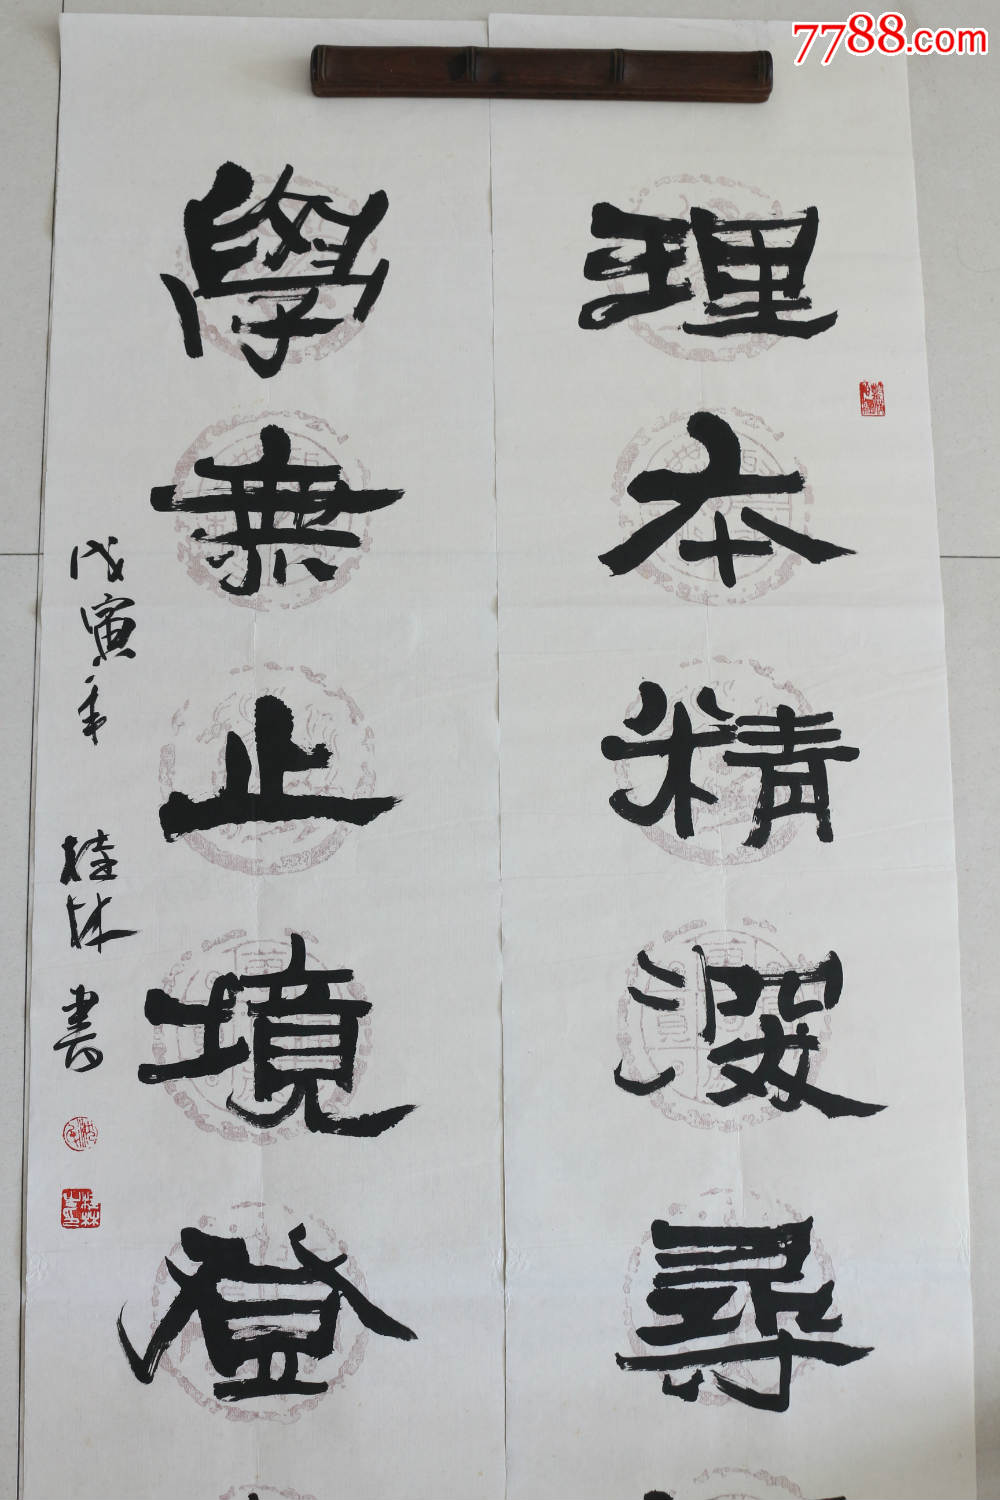 7788.com
理本精深尋
學無止境登
戊寅年 桂林書